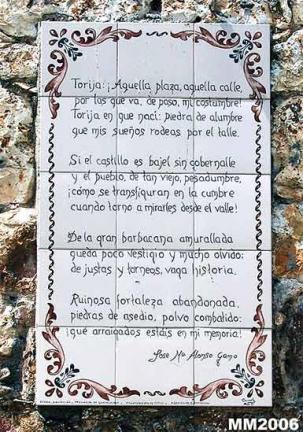 Torija: ¡Aquella plaza, aquella calle,
por las que va, de paso, mi costumbre!
Torija en que nací: piedra de alumbre
que mis sueños rodeas por el talle.
Si el castillo es bajel sin gobernalle
y el pueblo, de tan viejo, pesadumbre,
¡cómo se transfiguran en la cumbre
cuando torno a mirarles desde el valle!
De la gran barbacana amurallada
queda poco vestigio y mucho olvido:
de justas y torneos, vaga historia.
Ruinosa fortaleza abandonada,
piedras de asedio, polvo combatido:
¡qué arraigados estáis en mi memoria!
Jose Mª Alonso Gamo
MM2006